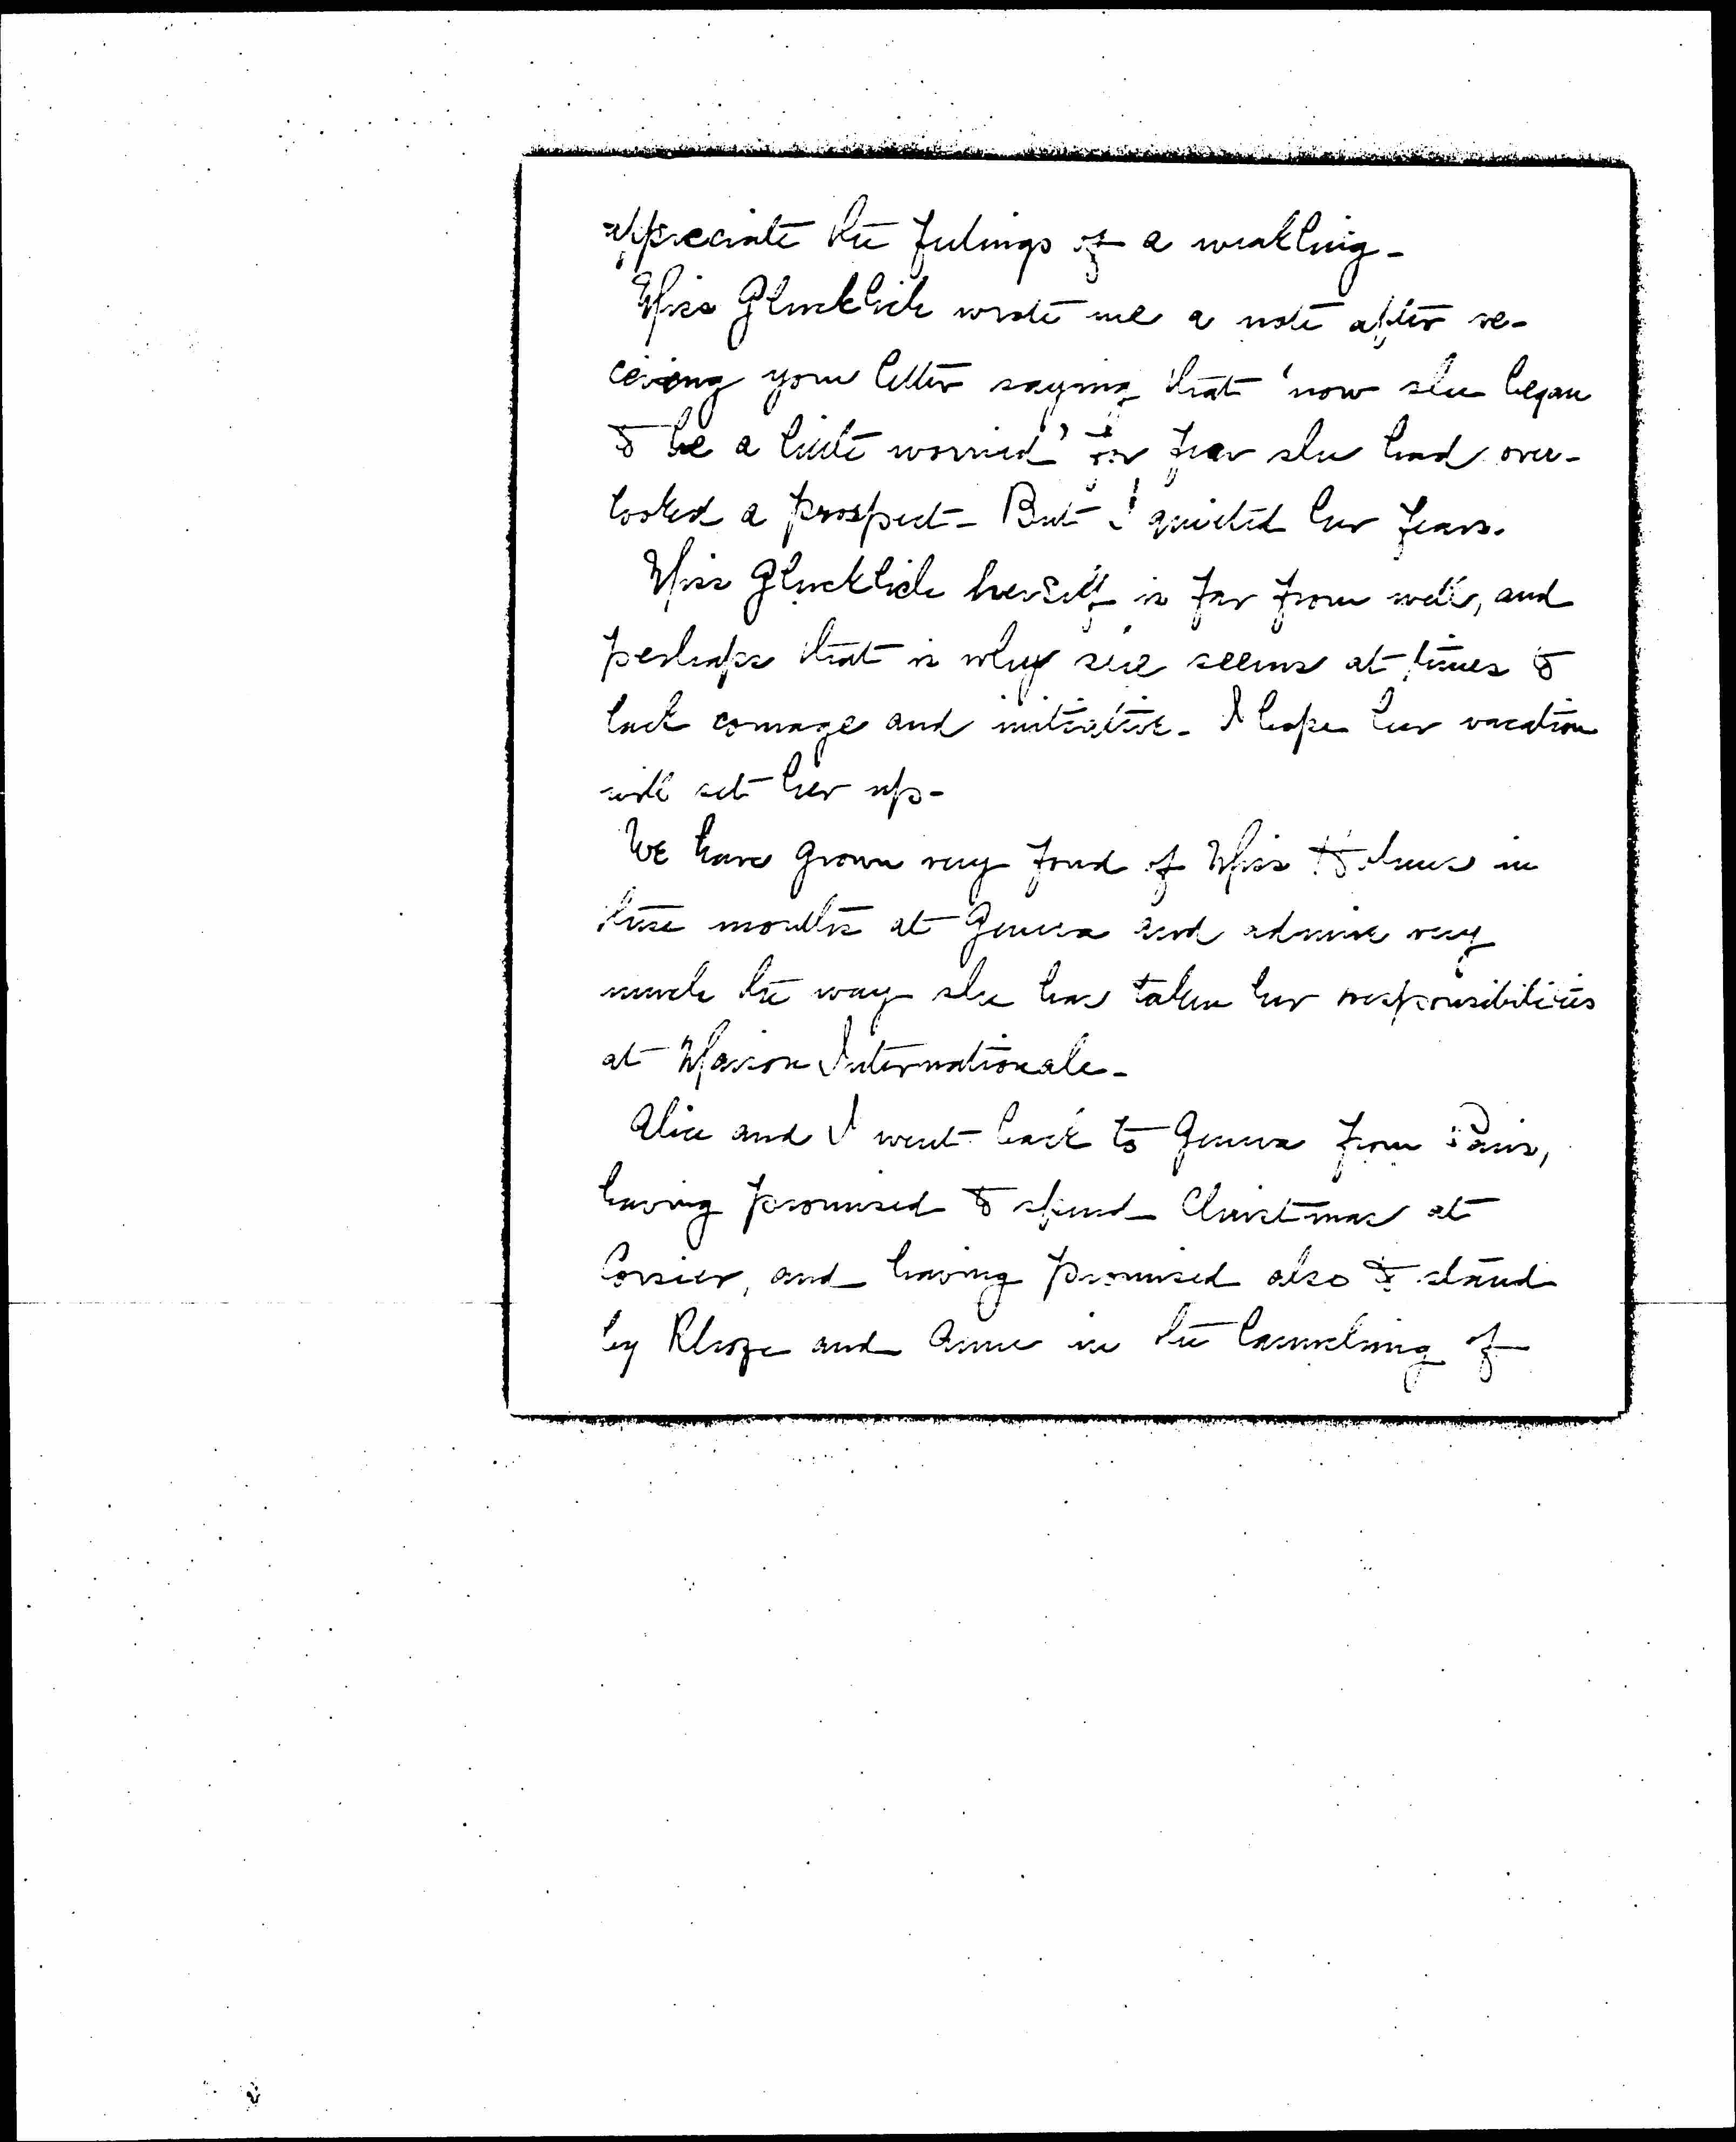 appreciate the feelings of a weakling -
Miss Glücklich wrote me a note after re-
ceiving your letter saying that 'now she began
to be a little worried' for fear she had over-
looked a prospect - But I quieted her fears.
Miss Glücklich herself is far from well, and
perhaps that is why she seems at times to
lack courage and initiative. I hope her vacation
will set her up -
We have grown very fond of Miss Holmes in
these months at Geneva and admire very
much the way she has taken her responsibilities
at Maison Internationale -
Alice and I went back to Geneva from Paris,
having promised to spend Christmas at
Corsier, and having promised also to stand
by and Anne in the launching of